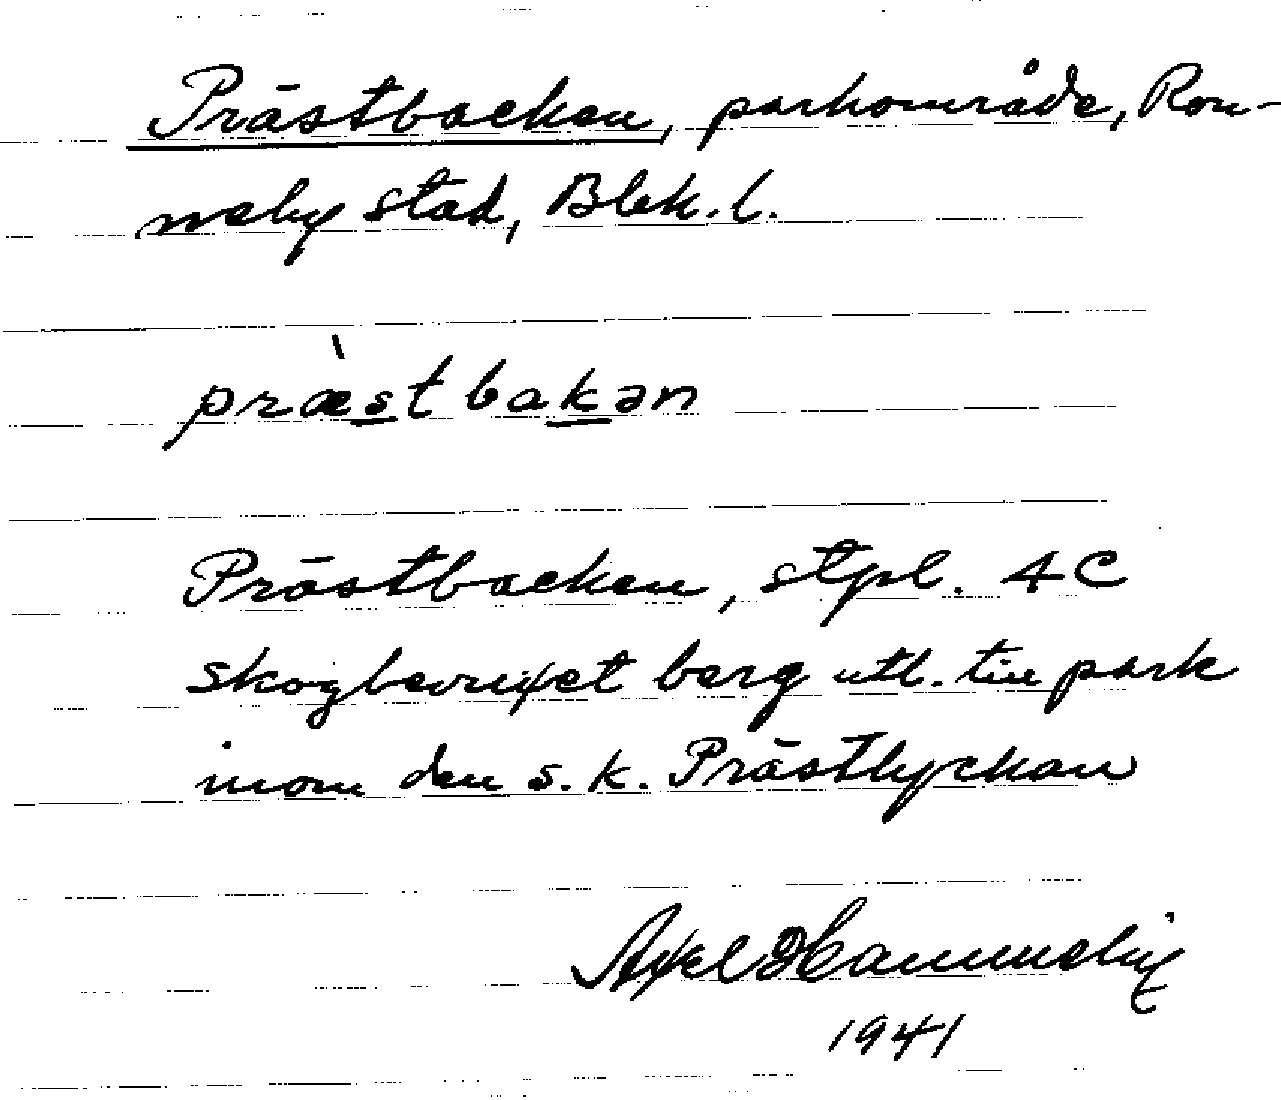 Prästbacken, parkområde, Ron-
neby stad, Blek. l.
præ̀stbakən
Prästbacken, stpl. 4C
skogbevuxet berg utl. till park
inom den s. k. Prästlyckan
Axel Hammeby
1941